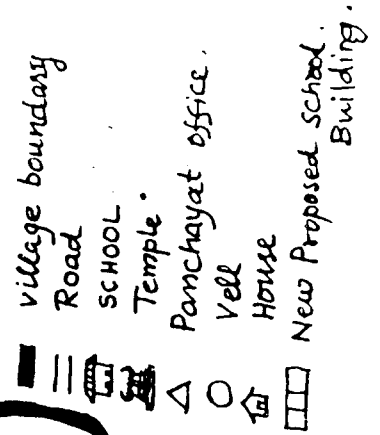 village boundary
Road
SCHOOL
Temple.
Panchayat office.
Vell
House
New Proposed school.
Building.